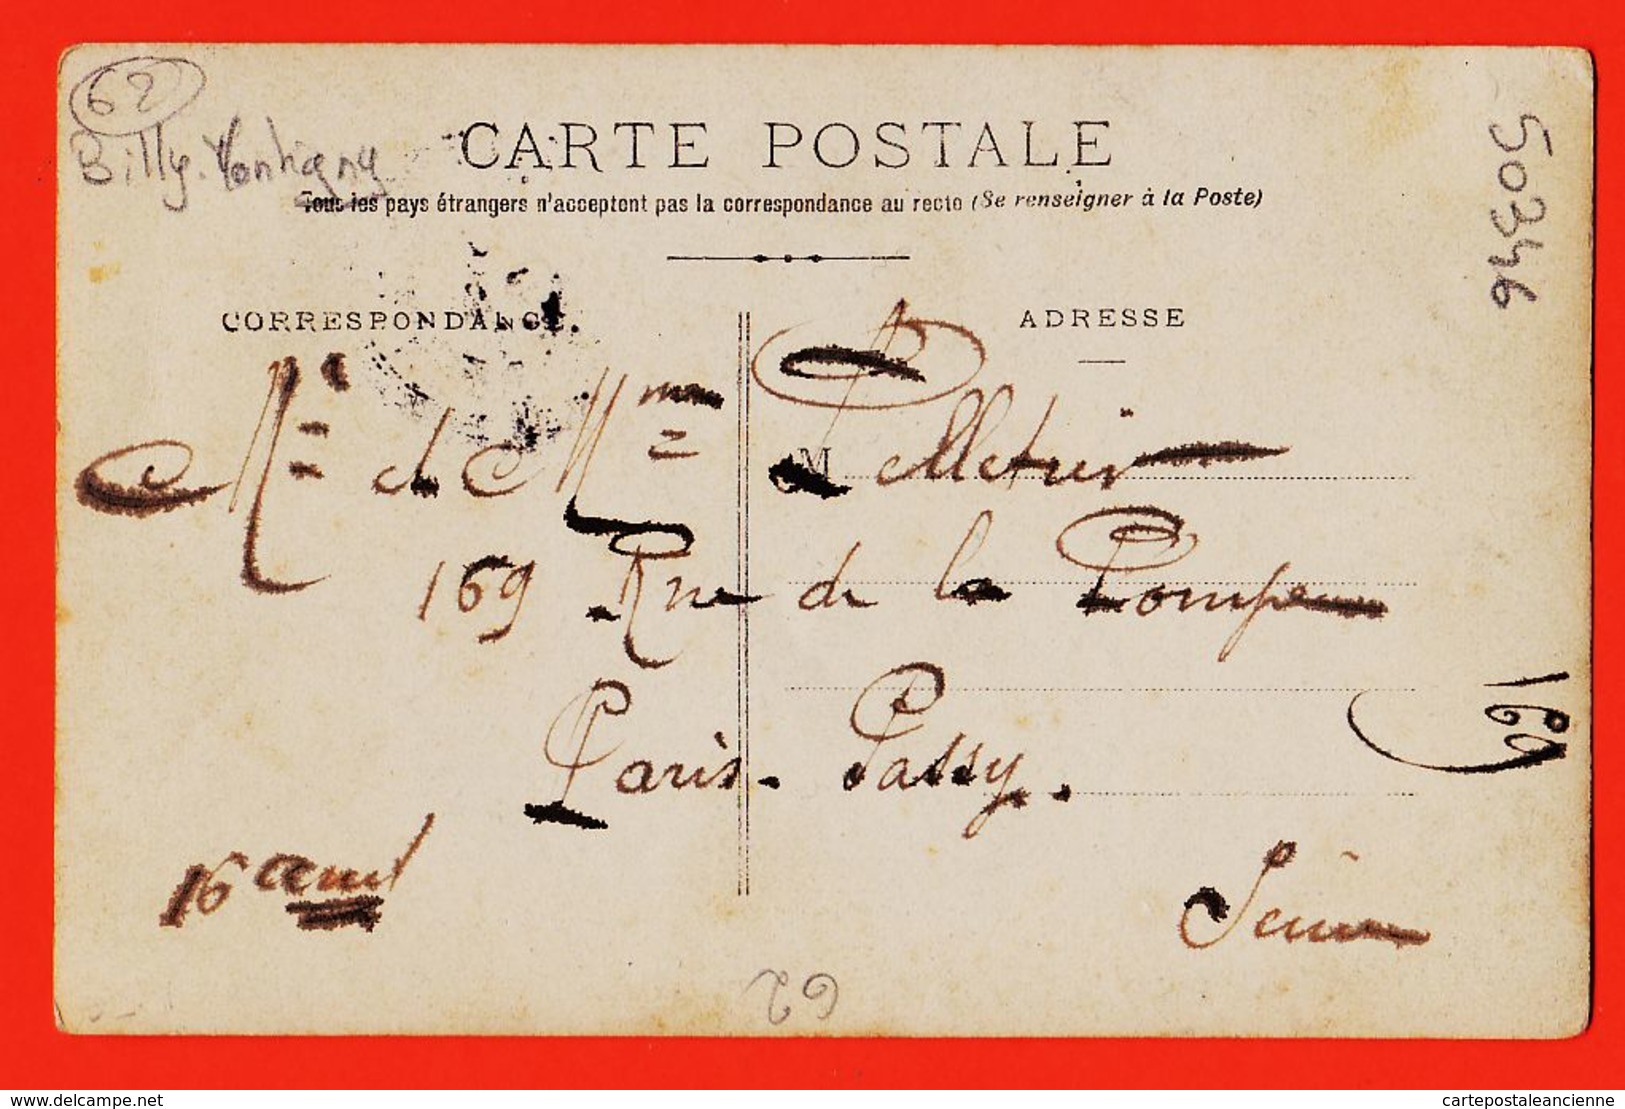 62
Billy-Montigny
CARTE POSTALE
Tous les pays étrangers n'acceptent pas la correspondance au recto (Se renseigner à la Poste)
50346
CORRESPONDANCE.
ADRESSE
Mr et Mme Pelletier
M
169 Rue de la Pompe
169
Paris. Passy.
16e arrt
Seine
62
delcampe.net
cartepostaleancienne